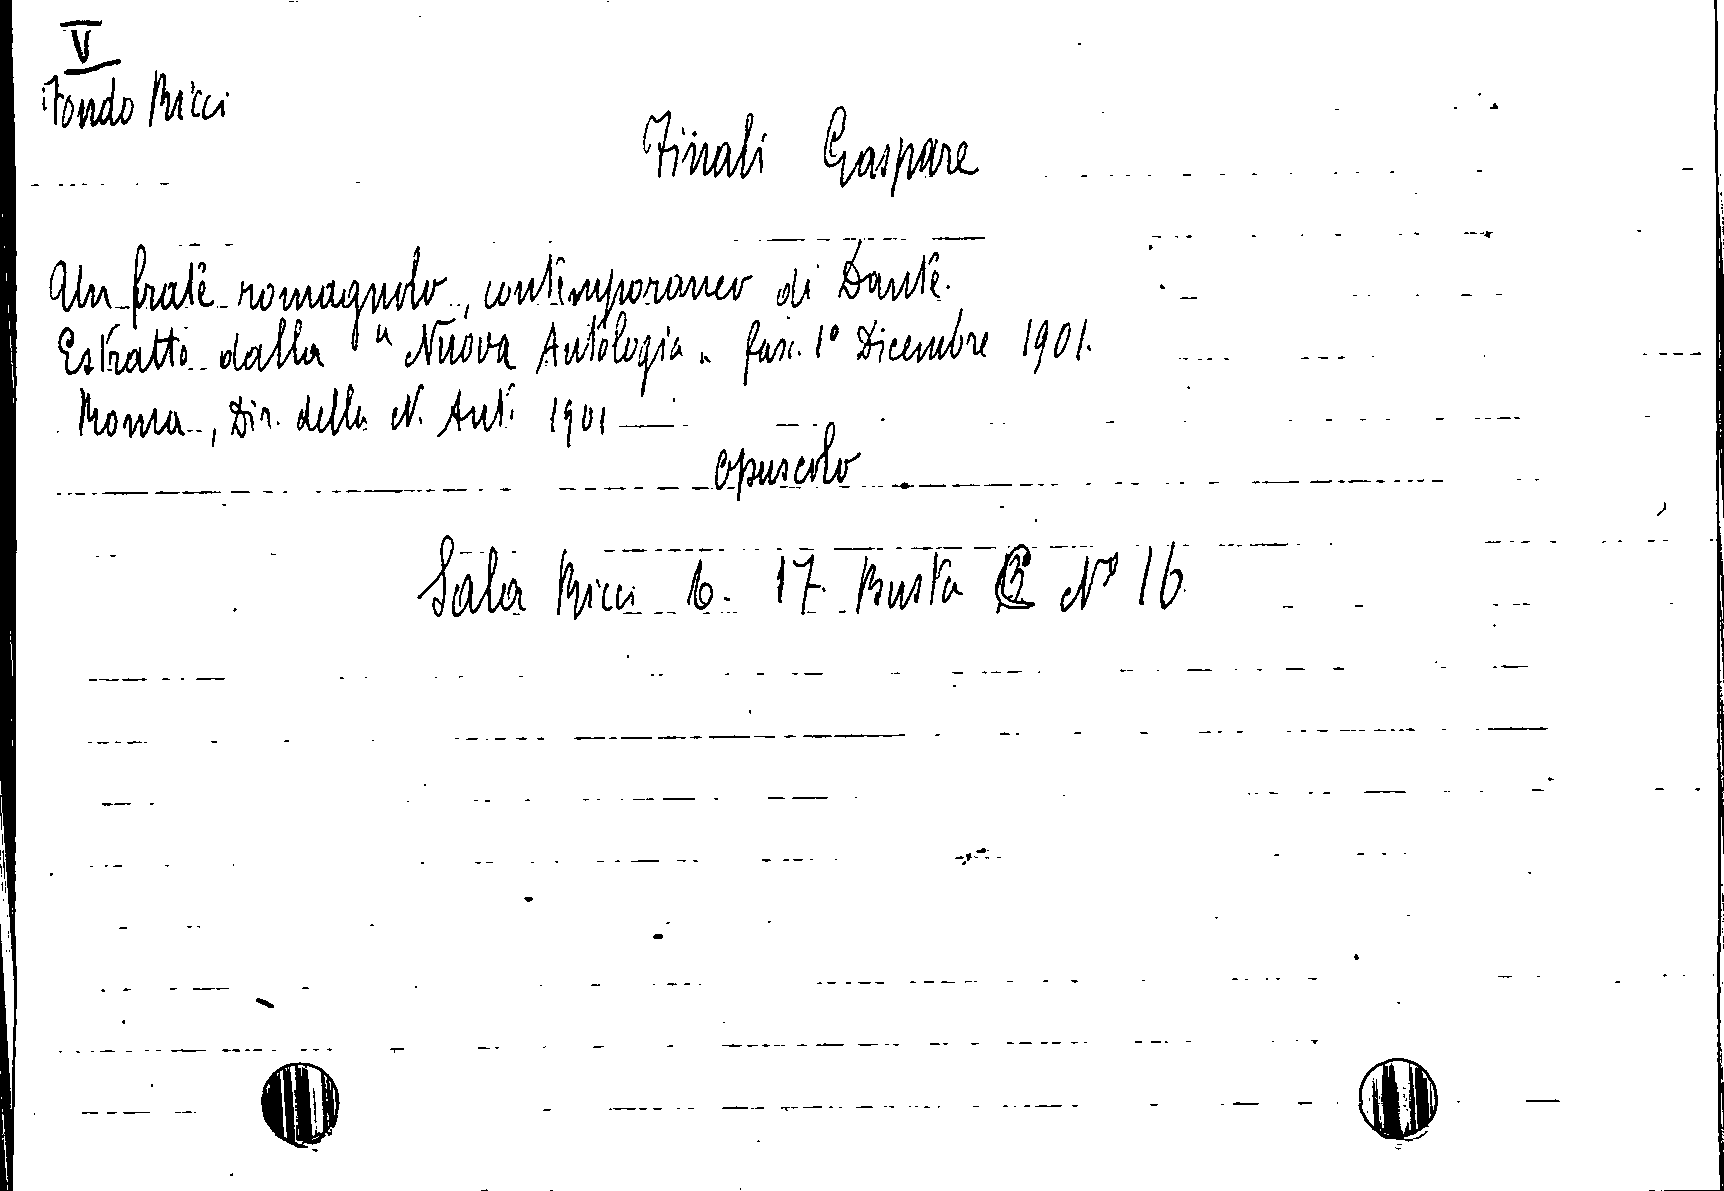 V
Fondo Ricci
Finali Gaspare
Un frate romagnolo, contemporaneo di Dante.
Estratto dalla "Nuova Antologia" fasc. 1° Dicembre 1901.
Roma, Dir. della N. Ant. 1901
opuscolo
Sala Ricci 6. 17. Busta N° 16